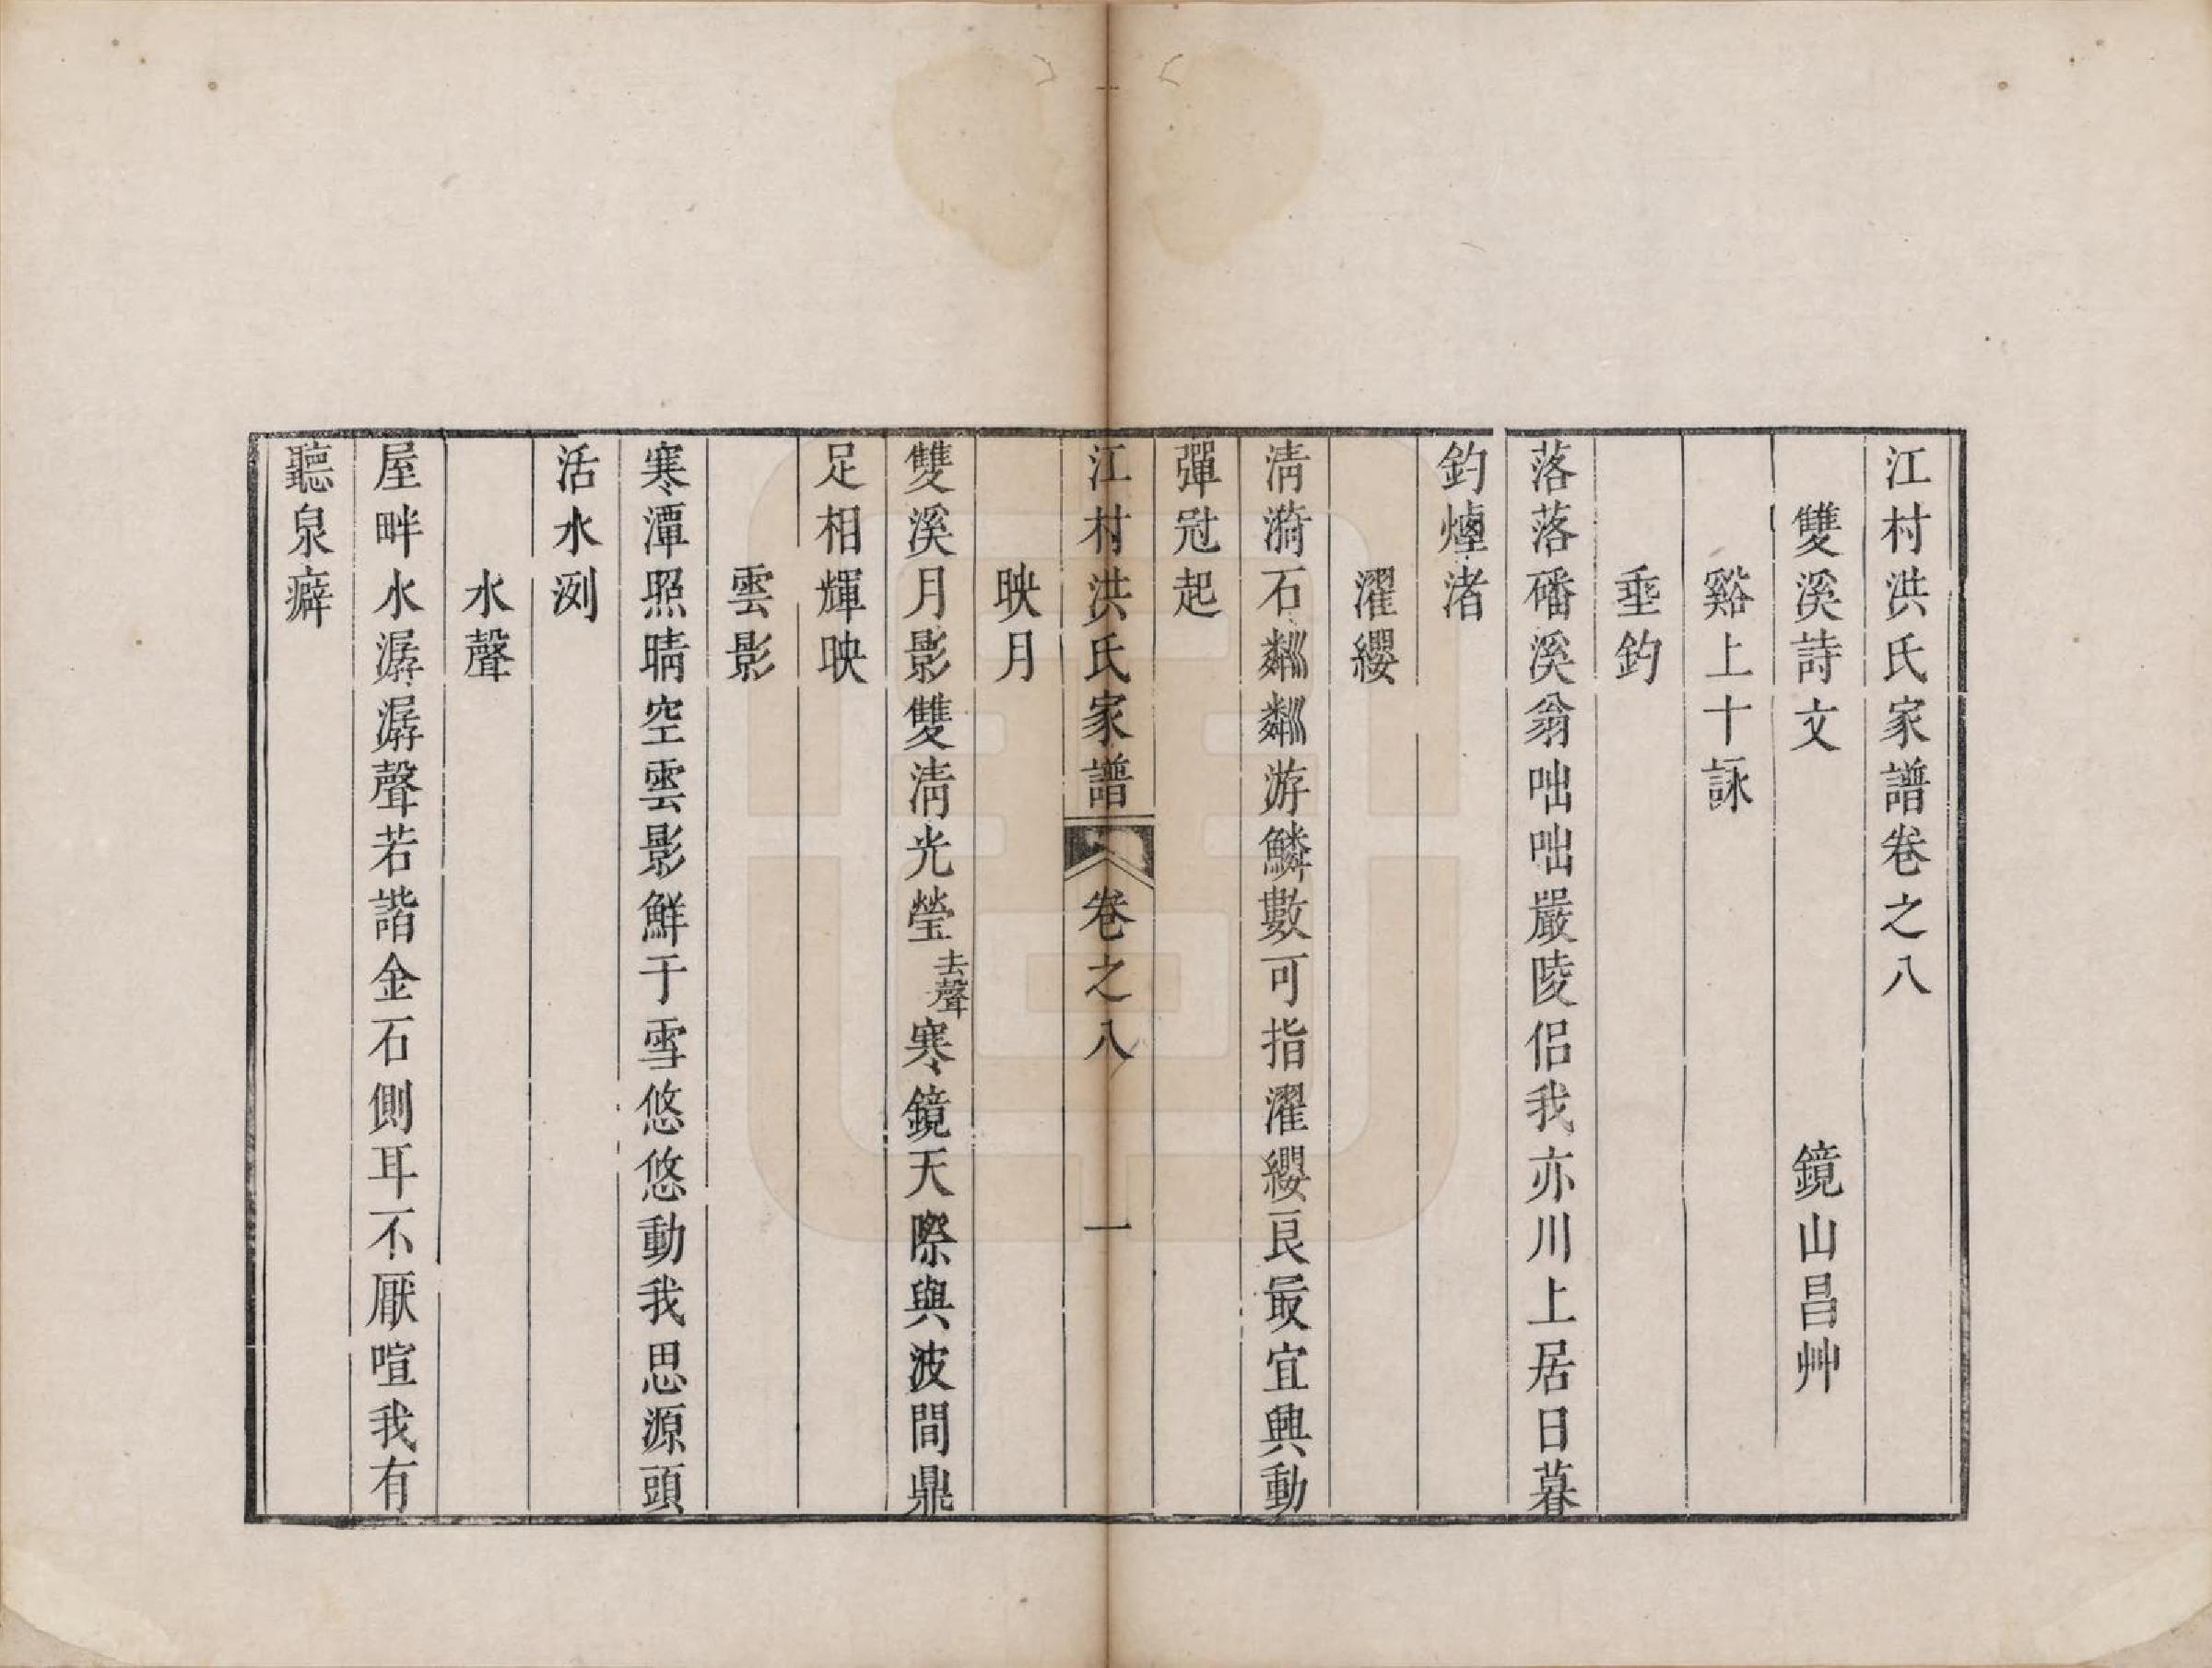 江村洪氏家譜卷之八
雙溪詩文 鏡山昌艸
谿上十詠
垂釣
落落磻溪翁咄咄嚴陵侶我亦川上居日暮
釣煙渚
濯纓
淸漪石粼粼游鱗數可指濯纓良最宜興動
彈冠起
江村洪氏家譜 卷之八 一
映月
雙溪月影雙淸光瑩去聲寒鏡天際與波間鼎
足相輝映
雲影
寒潭照晴空雲影鮮于雪悠悠動我思源頭
活水洌
水聲
屋畔水潺潺聲若諧金石側耳不厭喧我有
聽泉癖